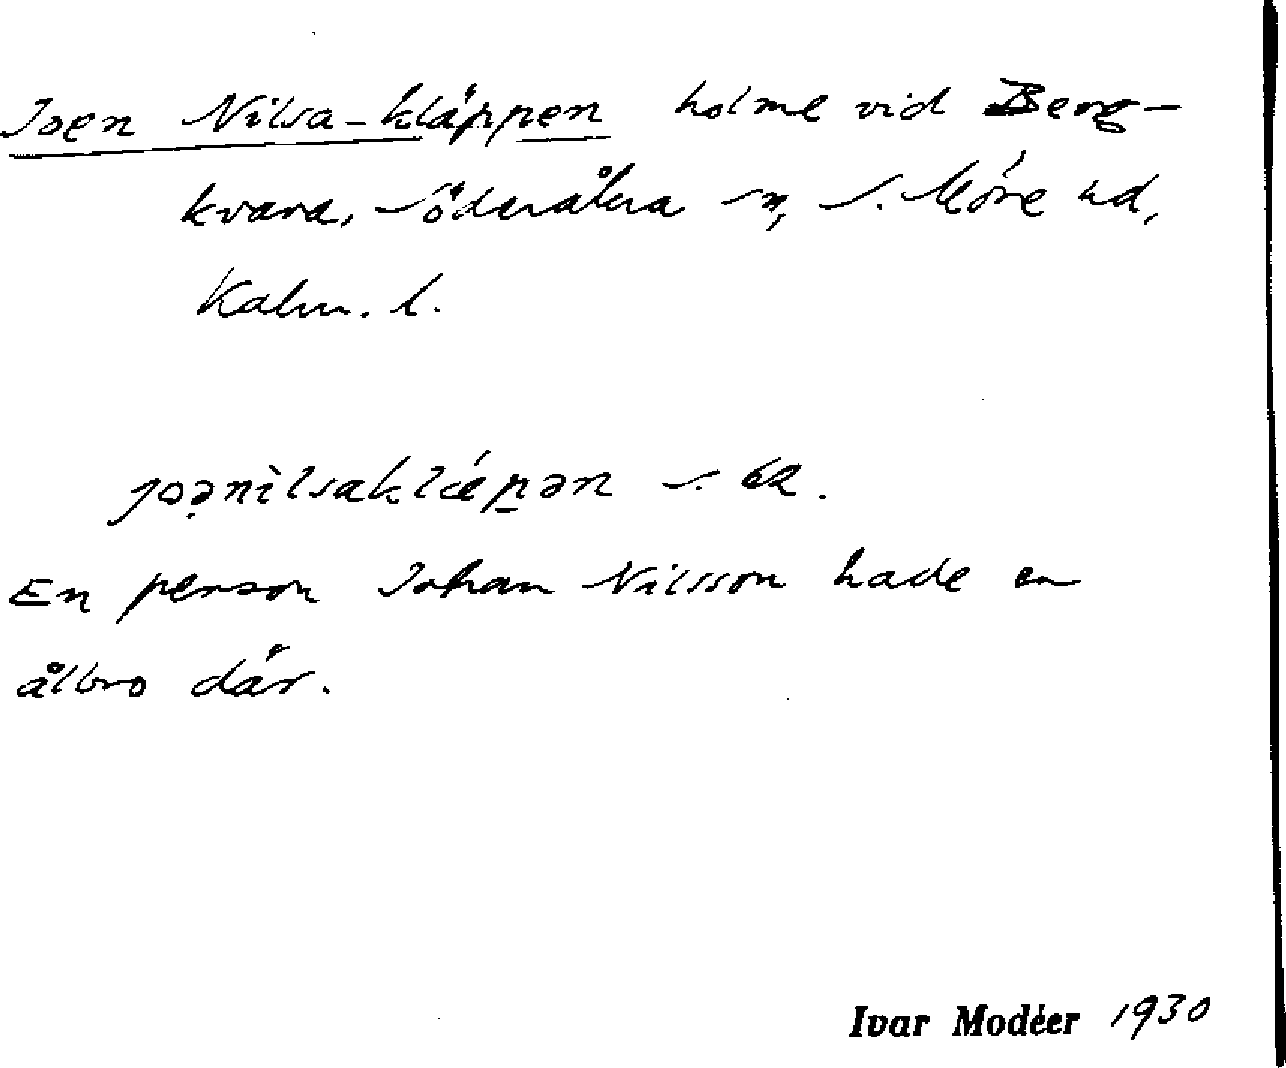 Joen Nilsa-kläppen holme vid Berg-
kvara, Söderåkra sn, S. Möre hd,
Kalm. l.
joənìlsaklǽpən s. ba.
En person Johan Nilsson hade en
ålbro där.
Ivar Modéer 1930